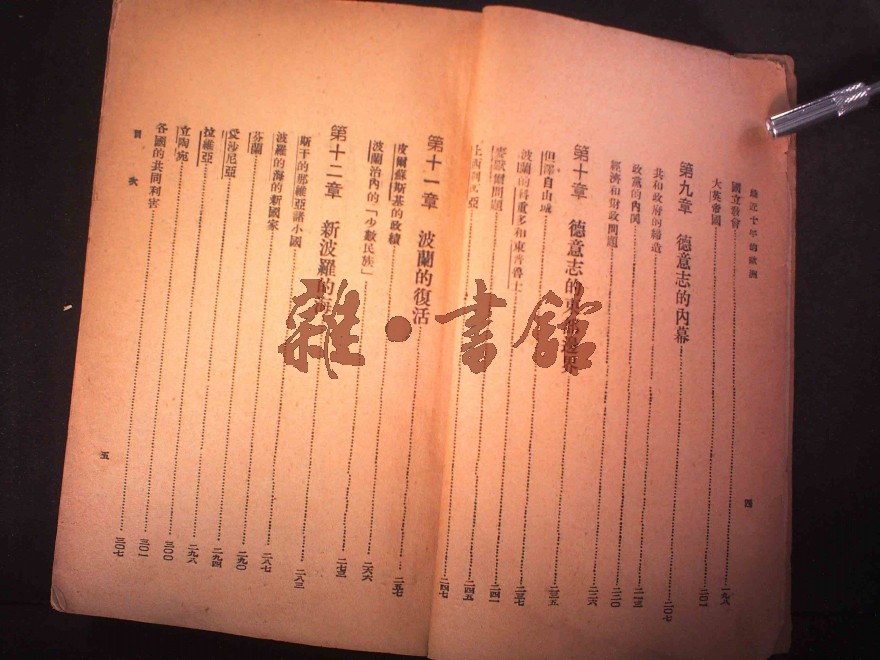 最近十年的歐洲
國立教會……一九八
大英帝國……二〇一
第九章 德意志的內幕……二〇七
共和政府的締造……二一三
政黨的內閣……二二〇
經濟和財政問題……二二六
第十章 德意志的東部邊界……二三五
但澤自由城……二三七
波蘭的科覃多和東普魯士……二四一
問題……二四五
上西利西亞……二四七
四
第十一章 波蘭的復活……二五七
皮爾蘇斯基的政績……二六六
波蘭治內的「少數民族」……二七三
第十二章 新波羅的海……二八三
斯干的那維亞諸小國……二八七
波羅的海的新國家……二九〇
芬蘭……二九四
愛沙尼亞……二九六
拉維亞……三〇〇
立陶宛……三〇一
各國的共同利害……三〇七
目次
五
雜·書館